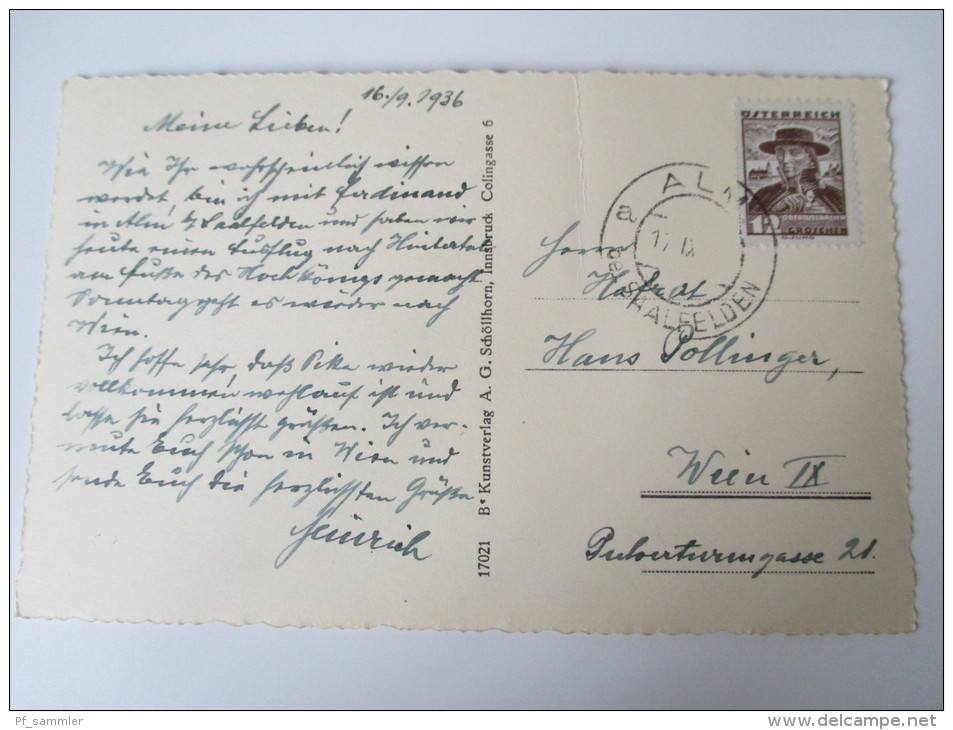 16./9. 1936
Meine Lieben!
Wie Ihr wahrscheinlich wissen
werdet, bin ich mit Ferdinand
in Alm b/Saalfelden und haben wir
heute einen Ausflug nach Hintertal
am Fuße des Hochkönigs gemacht
Sonntag geht es wieder nach
Wien.
Ich hoffe sehr, daß wieder
vollkommen wohlauf ist und
lasse sie herzlichst grüßen. Ich ver-
mute Euch schon in Wien und
sende Euch die herzlichsten Grüße
Heinrich
17021 B* Kunstverlag A. G. Schöllhorn, Innsbruck Colingasse 6
ÖSTERREICH
OBERÖSTERREICH
GROSCHEN
ALM
bei SAALFELDEN
17 IX
Herrn
Hofrat
Hans Pollinger,
Wien IX
Pulverturmgasse 21.
Pf_sammler
www.delcampe.net